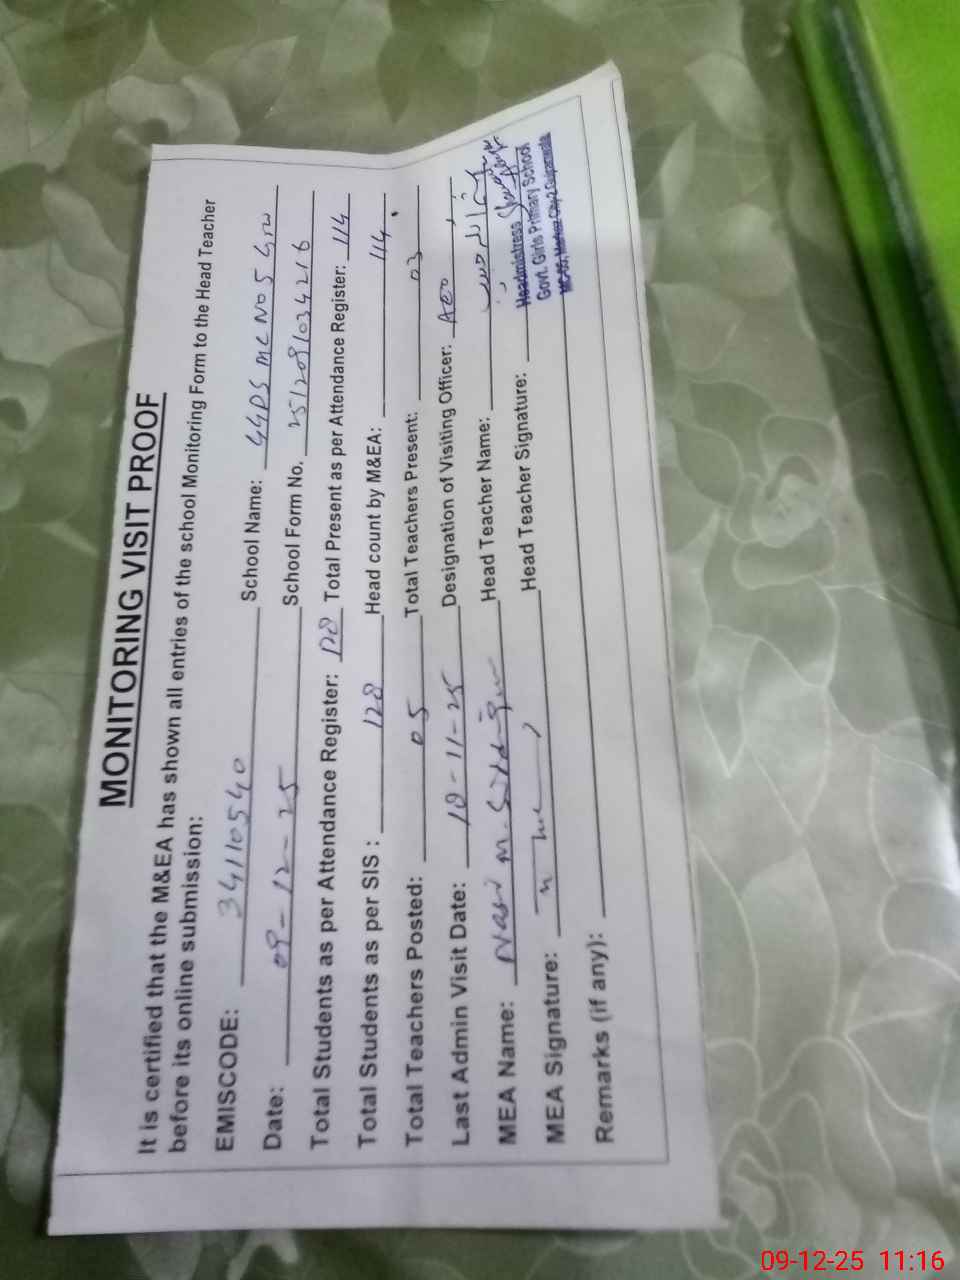 MONITORING VISIT PROOF
It is certified that the M&EA has shown all entries of the school Monitoring Form to the Head Teacher
before its online submission:
EMISCODE: 34110540 School Name: GGPS MC No 5 Grw
Date: 09-12-25 School Form No. 2512091034216
Total Students as per Attendance Register: 128 Total Present as per Attendance Register: 114
Total Students as per SIS: 128 Head count by M&EA: 114
Total Teachers Posted: 05 Total Teachers Present: 03
Last Admin Visit Date: 18-11-25 Designation of Visiting Officer: AEO
MEA Name: Nasir M. Head Teacher Name:
MEA Signature: Head Teacher Signature:
Headmistress
Govt. Girls Primary School
Remarks (if any):
09-12-25 11:16